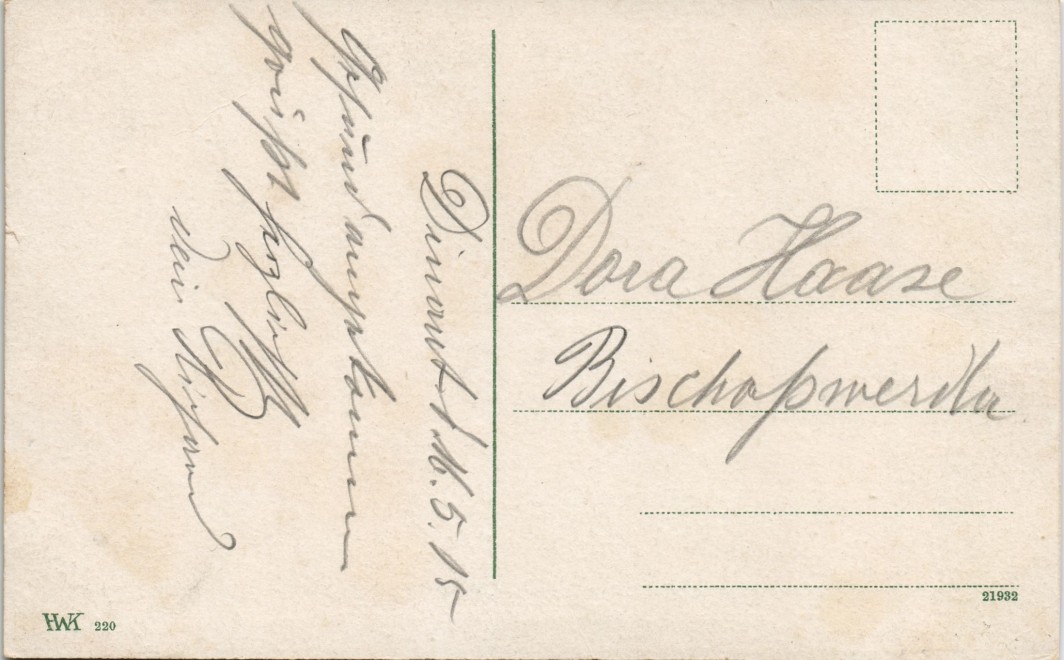 Dinant, 16. 5. 15
Gesund angekommen
grüßt herzlichst
Dein
Dora Haase
Bischofswerda
21932
HWK 220